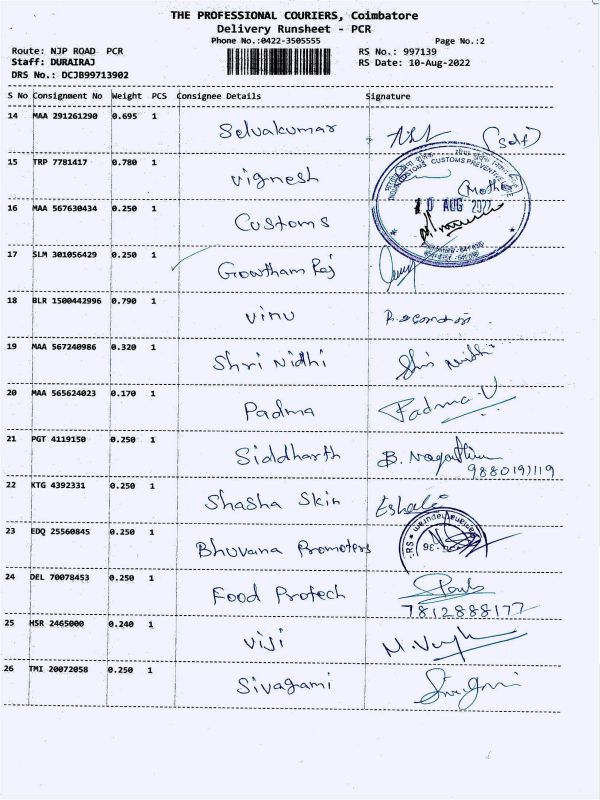 THE PROFESSIONAL COURIERS, Coimbatore
Delivery Runsheet - PCR
Phone No.:0422-3505555 Page No.:2
Route: NJP ROAD PCR RS No.: 997139
Staff: DURAIRAJ RS Date: 10-Aug-2022
DRS No.: DCJB99713902
S No Consignment No Weight PCS Consignee Details Signature
14 MAA 291261290 0.695 1 Selvakumar (Self)
15 TRP 7781417 0.780 1 Vignesh (Mother)
CUSTOMS PREVENTIVE
10 AUG 2022
16 MAA 567630434 0.250 1 Customs
17 SLM 301056429 0.250 1 Gowtham Raj
18 BLR 1500442996 0.790 1 Vinu
19 MAA 567240986 0.320 1 Shri Nidhi Shri Nidhi
20 MAA 565624023 0.170 1 Padma Padma.U
21 PGT 4119150 0.250 1 Siddharth B.
9880191119
22 KTG 4392331 0.250 1 Shasha Skin
23 EDQ 25560845 0.250 1 Bhuvana Promoters
24 DEL 70078453 0.250 1 Food Protech
7812888177
25 HSR 2465000 0.240 1 Viji
26 TMI 20072058 0.250 1 Sivagami